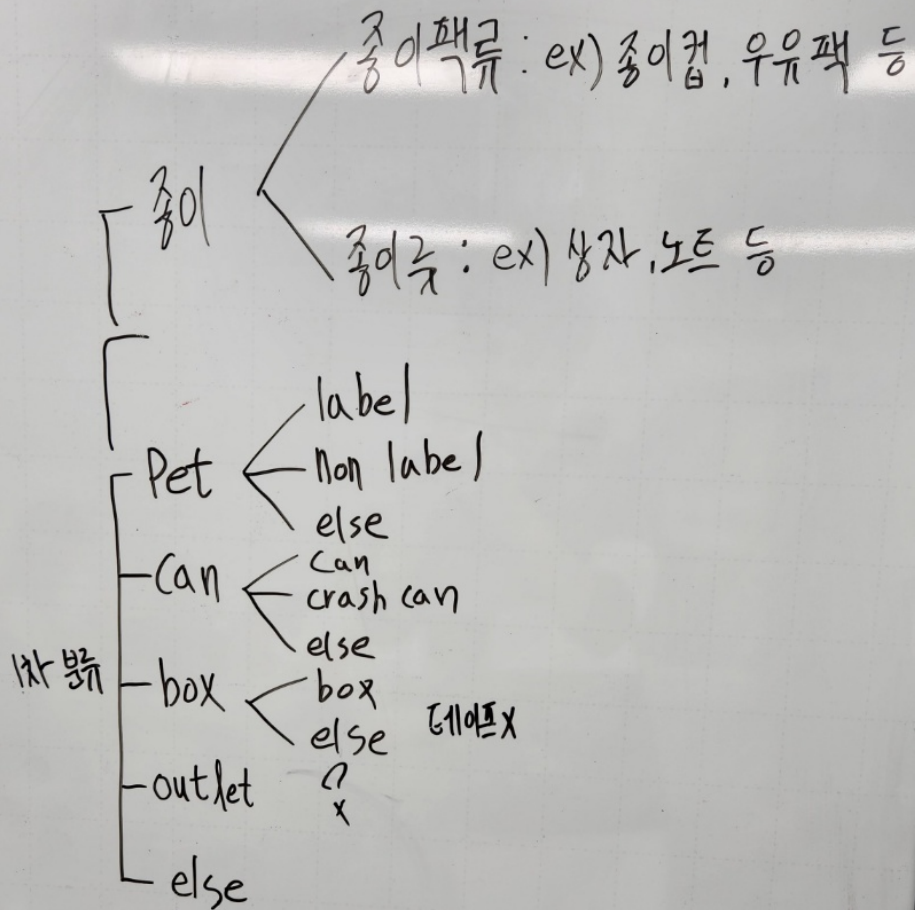 종이팩류 : ex) 종이컵, 우유팩 등
종이
종이류 : ex) 상자, 노트 등
label
Pet
non label
else
can
Can
crash can
else
1차 분류
box
box
else 테이프x
outlet ?
x
else